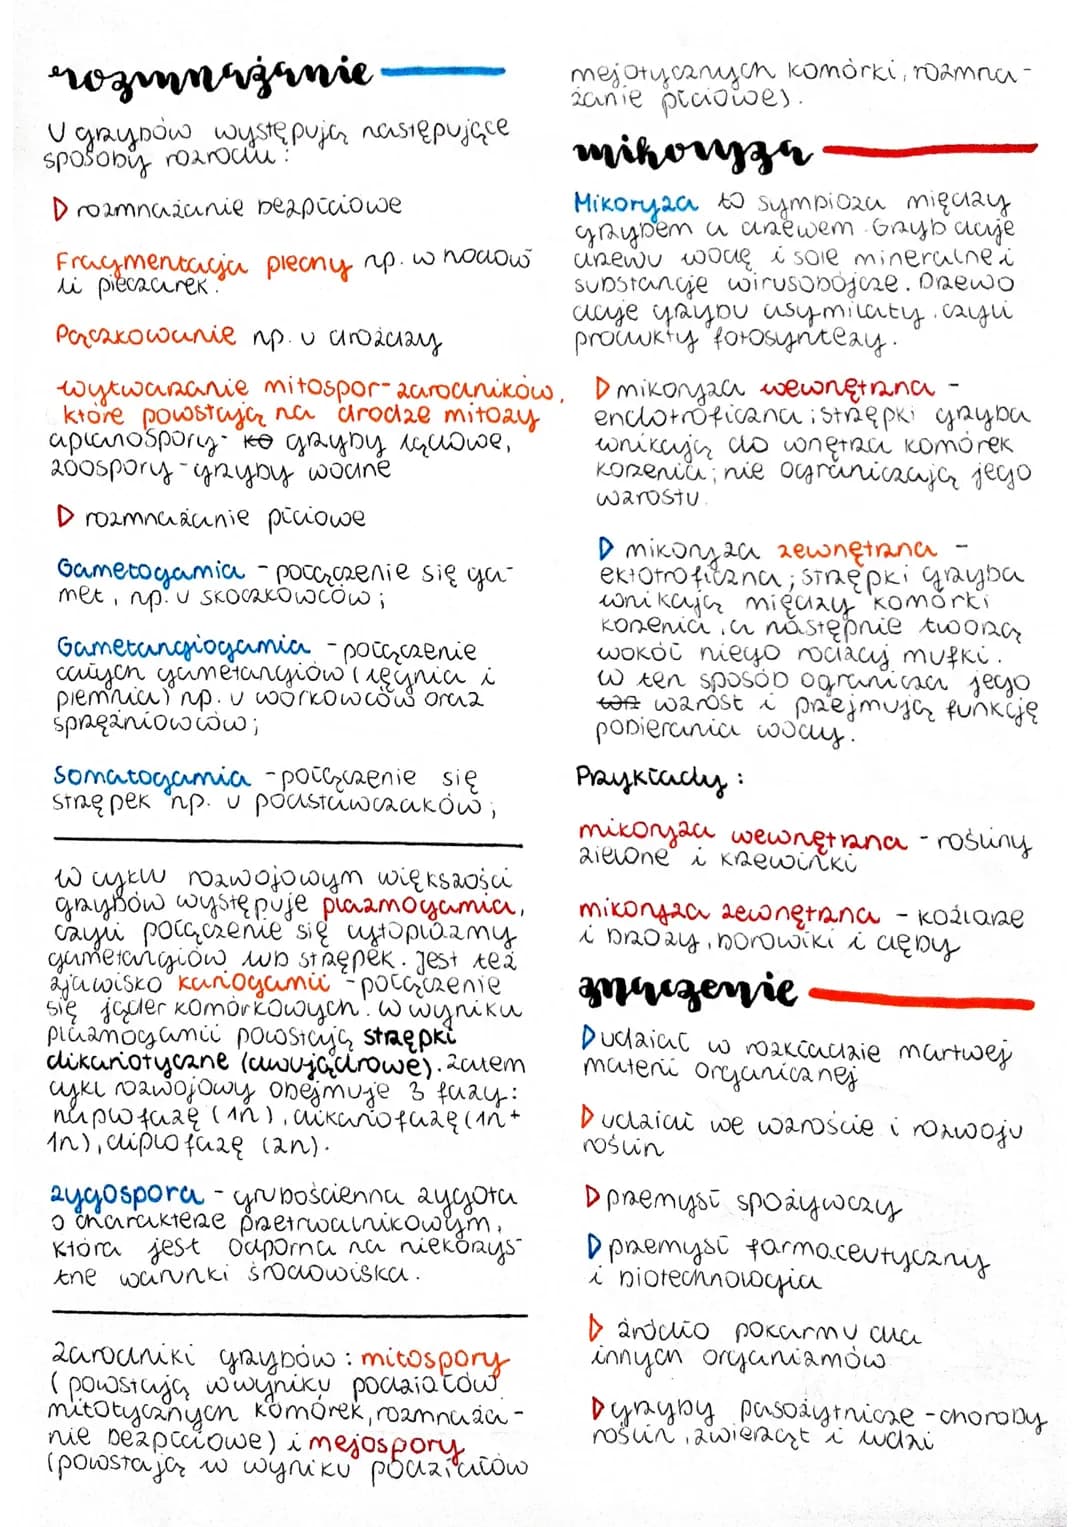 rozmnażanie
U grzybów występują następujące
sposoby rozrodu:
rozmnażanie bezpłciowe
Fragmentacja plechy np. w hodow
li pieczarek.
Pączkowanie np. u drożdży
wytwarzanie mitospor-zarodników,
które powstają na drodze mitozy
aplanospory- grzyby lądowe,
zoospory-grzyby wodne
rozmnażanie płciowe
Gametogamia - połączenie się ga-
met, np. u skoczkowców;
Gametangiogamia - połączenie
całych gametangiów (lęgnia i
plemnia) np. u workowców oraz
sprzężniowców;
Somatogamia - połączenie się
strzępek np. u podstawczaków;
W cyklu rozwojowym większości
grzybów występuje plazmogamia,
czyli połączenie się cytoplazmy
gametangiów lub strzępek. Jest też
zjawisko kariogamii - połączenie
się jąder komórkowych. W wyniku
plazmogamii powstają strzępki
dikariotyczne (dwujądrowe). Zatem
cykl rozwojowy obejmuje 3 fazy:
haplofazę (1n), dikariofazę (1n+
1n), diplofazę (2n).
zygospora - grubościenna zygota
o charakterze przetrwalnikowym,
która jest odporna na niekorzys
tne warunki środowiska.
Zarodniki grzybów: mitospory
(powstają w wyniku podziałów
mitotycznych komórek, rozmnaża-
nie bezpłciowe) i mejospory
(powstają w wyniku podziałów
mejotycznych komórki, rozmna-
żanie płciowe).
mikoryza
Mikoryza to symbioza między
grzybem a drzewem. Grzyb daje
drzewu wodę i sole mineralne i
substancje wirusobójcze. Drzewo
daje grzybu asymilaty, czyli
produkty fotosyntezy.
mikoryza wewnętrzna -
endotroficzna; strzępki grzyba
wnikają do wnętrza komórek
korzenia; nie ograniczają jego
wzrostu.
mikoryza zewnętrzna -
ektotroficzna; strzępki grzyba
wnikają między komórki
korzenia, a następnie tworzą
wokół niego rodzaj mufki.
W ten sposób ogranicza jego
wzrost i przejmują funkcję
pobierania wody.
Przykłady:
mikoryza wewnętrzna - rośliny
zielone i krzewinki
mikoryza zewnętrzna - koźlarze
i brzozy, borowiki i dęby
znaczenie
udział w rozkładzie martwej
materii organicznej
udział we wzroście i rozwoju
roślin
przemysł spożywczy
przemysł farmaceutyczny
i biotechnologia
źródło pokarmu dla
innych organizmów
grzyby pasożytnicze - choroby
roślin, zwierząt i ludzi